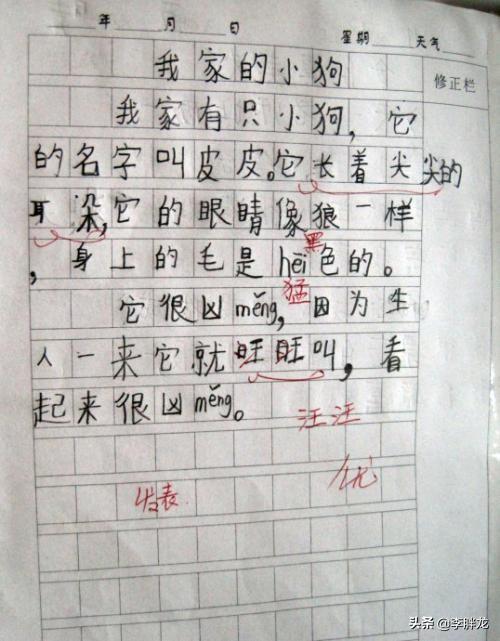 年 月 日 星期 天气
修正栏
我家的小狗
我家有只小狗，它
的名字叫皮皮。它长着尖尖的
耳朵，它的眼睛像狼一样
，身上的毛是hēi色的。
黑
它很凶měng，因为生
猛
人一来它就旺旺叫，看
起来很凶měng。
汪汪
发表
优
头条 @李胖龙